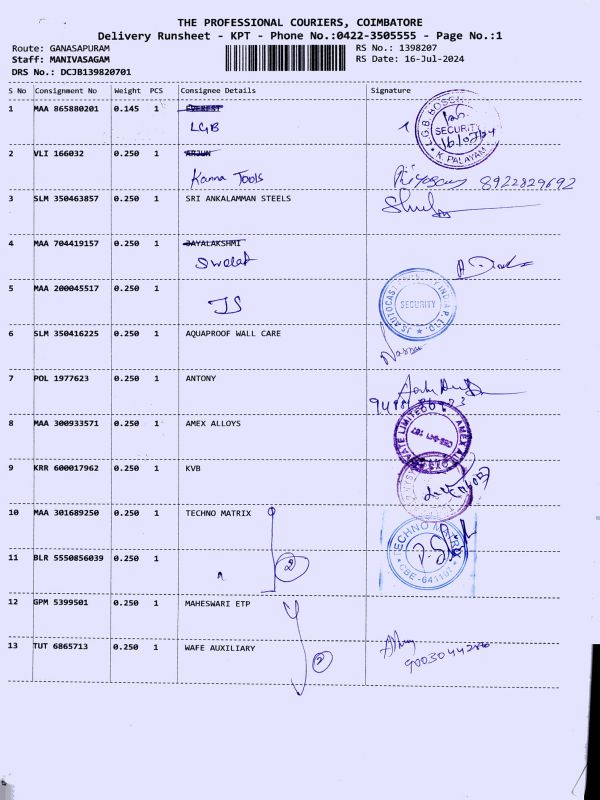 THE PROFESSIONAL COURIERS, COIMBATORE
Delivery Runsheet - KPT - Phone No.:0422-3505555 - Page No.:1
Route: GANASAPURAM
RS No.: 1398207
Staff: MANIVASAGAM
RS Date: 16-Jul-2024
DRS No.: DCJB139820701
S No Consignment No Weight PCS Consignee Details Signature
1 MAA 865880201 0.145 1 EVEREST
LGB
SECURITY
K. PALAYAM
2 VLI 166032 0.250 1 ARJUN
Kanna Tools
8922829692
3 SLM 350463857 0.250 1 SRI ANKALAMMAN STEELS
4 MAA 704419157 0.250 1 JAYALAKSHMI
5 MAA 200045517 0.250 1
JS
SECURITY
6 SLM 350416225 0.250 1 AQUAPROOF WALL CARE
7 POL 1977623 0.250 1 ANTONY
8 MAA 300933571 0.250 1 AMEX ALLOYS
9 KRR 600017962 0.250 1 KVB
10 MAA 301689250 0.250 1 TECHNO MATRIX
TECHNO MATRIX
CBE-641107
11 BLR 5550856039 0.250 1
2
12 GPM 5399501 0.250 1 MAHESWARI ETP
13 TUT 6865713 0.250 1 WAFE AUXILIARY
2